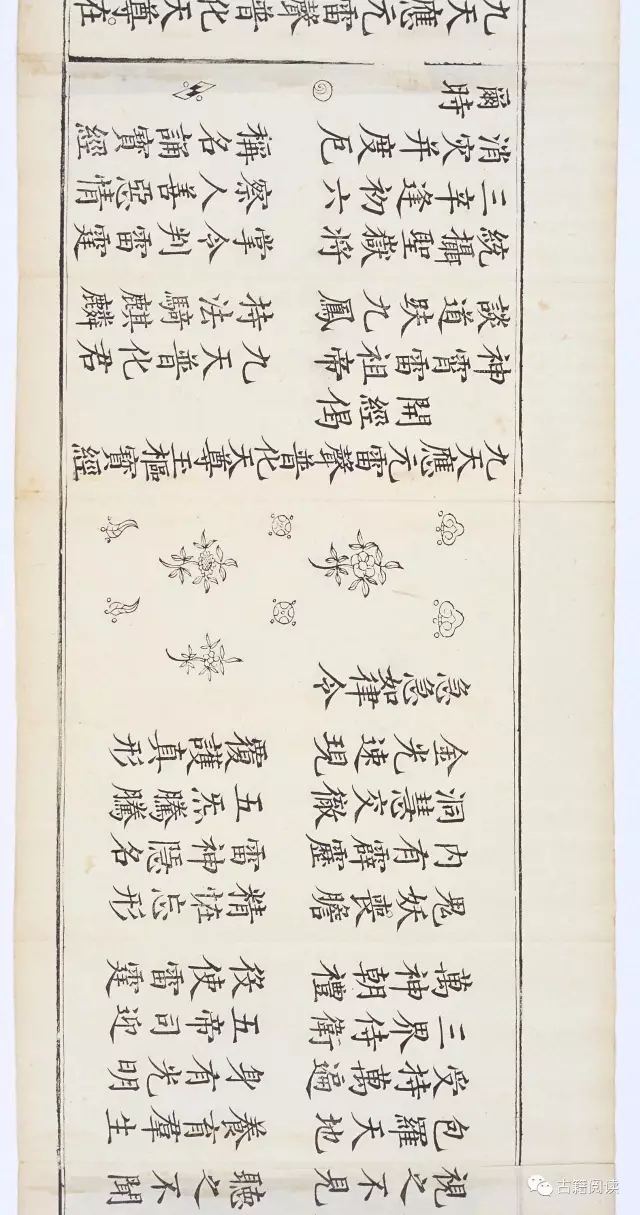 視之不見 聽之不聞
包羅天地 養育羣生
受持萬遍 身有光明
三界侍衛 五帝司迎
萬神朝禮 役使雷霆
鬼妖喪膽 精恠忘形
內有霹靂 雷神隱名
洞慧交徹 五炁騰騰
金光速現 覆護真形
急急如律令
九天應元雷聲普化天尊玉樞寶經
開經偈
神霄雷祖帝 九天普化君
談道趺九鳳 持法騎麒麟
統攝聖嶽將 掌令判雷霆
三辛逢初六 察人善惡情
消灾并度厄 稱名誦寶經
爾時
九天應元雷聲普化天尊在
古籍阅读